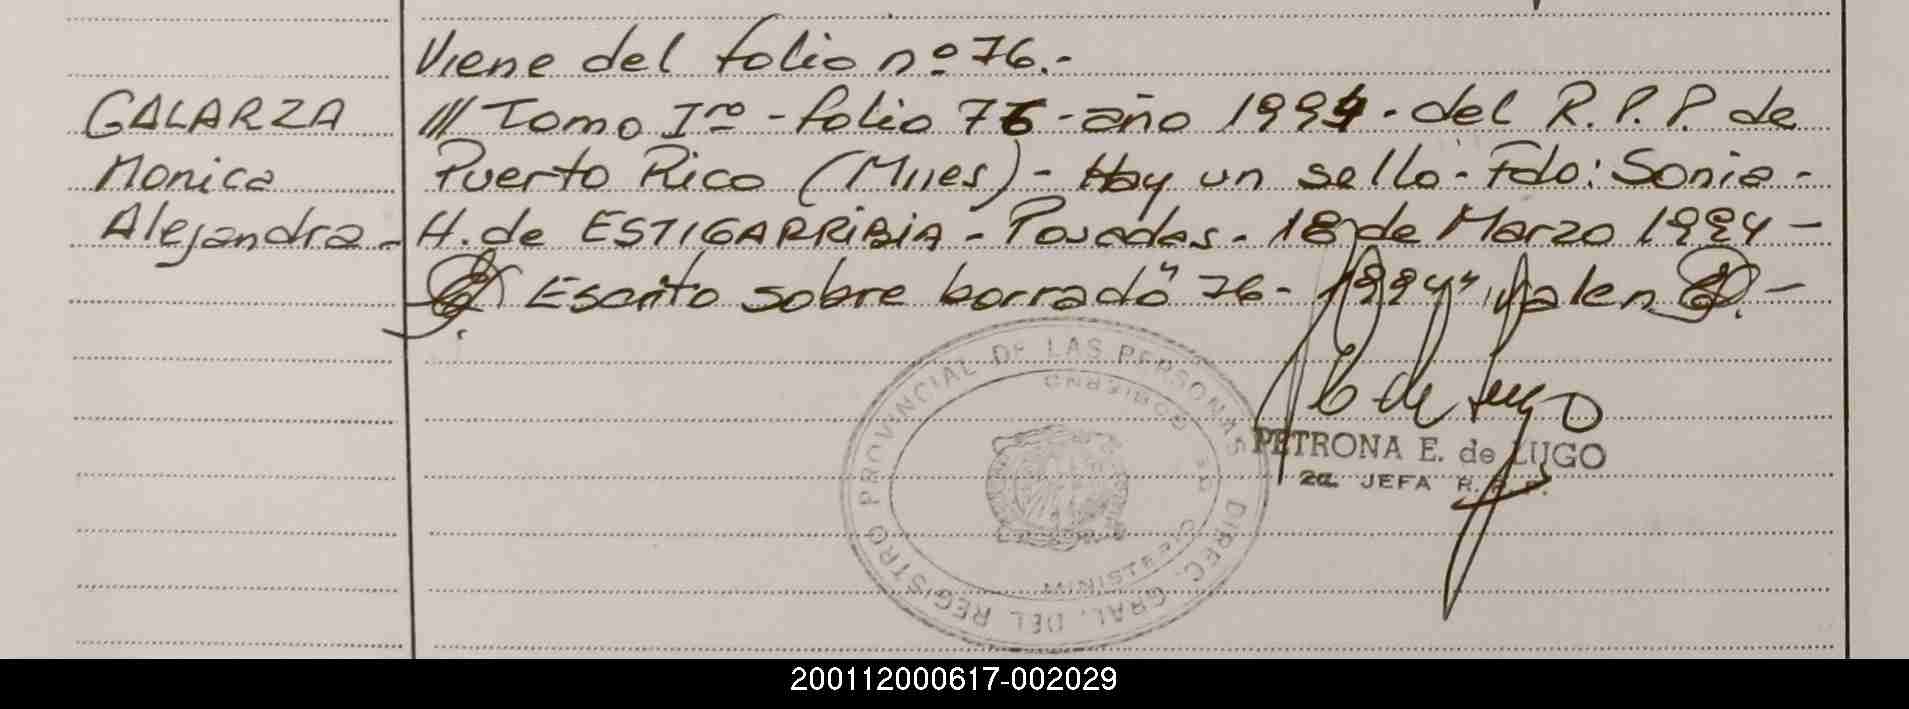 Viene del folio nº 76.-
GALARZA
Monica
Alejandra-
/// Tomo Iro - folio 76 - año 1994 - del R. P. P. de
Puerto Rico (Mnes) - Hay un sello - Fdo: Sonia -
H. de ESTIGARRIBIA - Posadas - 18 de Marzo 1994 -
Escrito sobre borrado "76 - 1994", Valen. -
PETRONA E. de LUGO
2a. JEFA R. P. P.
DIREC. GRAL. DEL REGISTRO PROVINCIAL DE LAS PERSONAS
MINISTERIO DE GOBIERNO
200112000617-002029